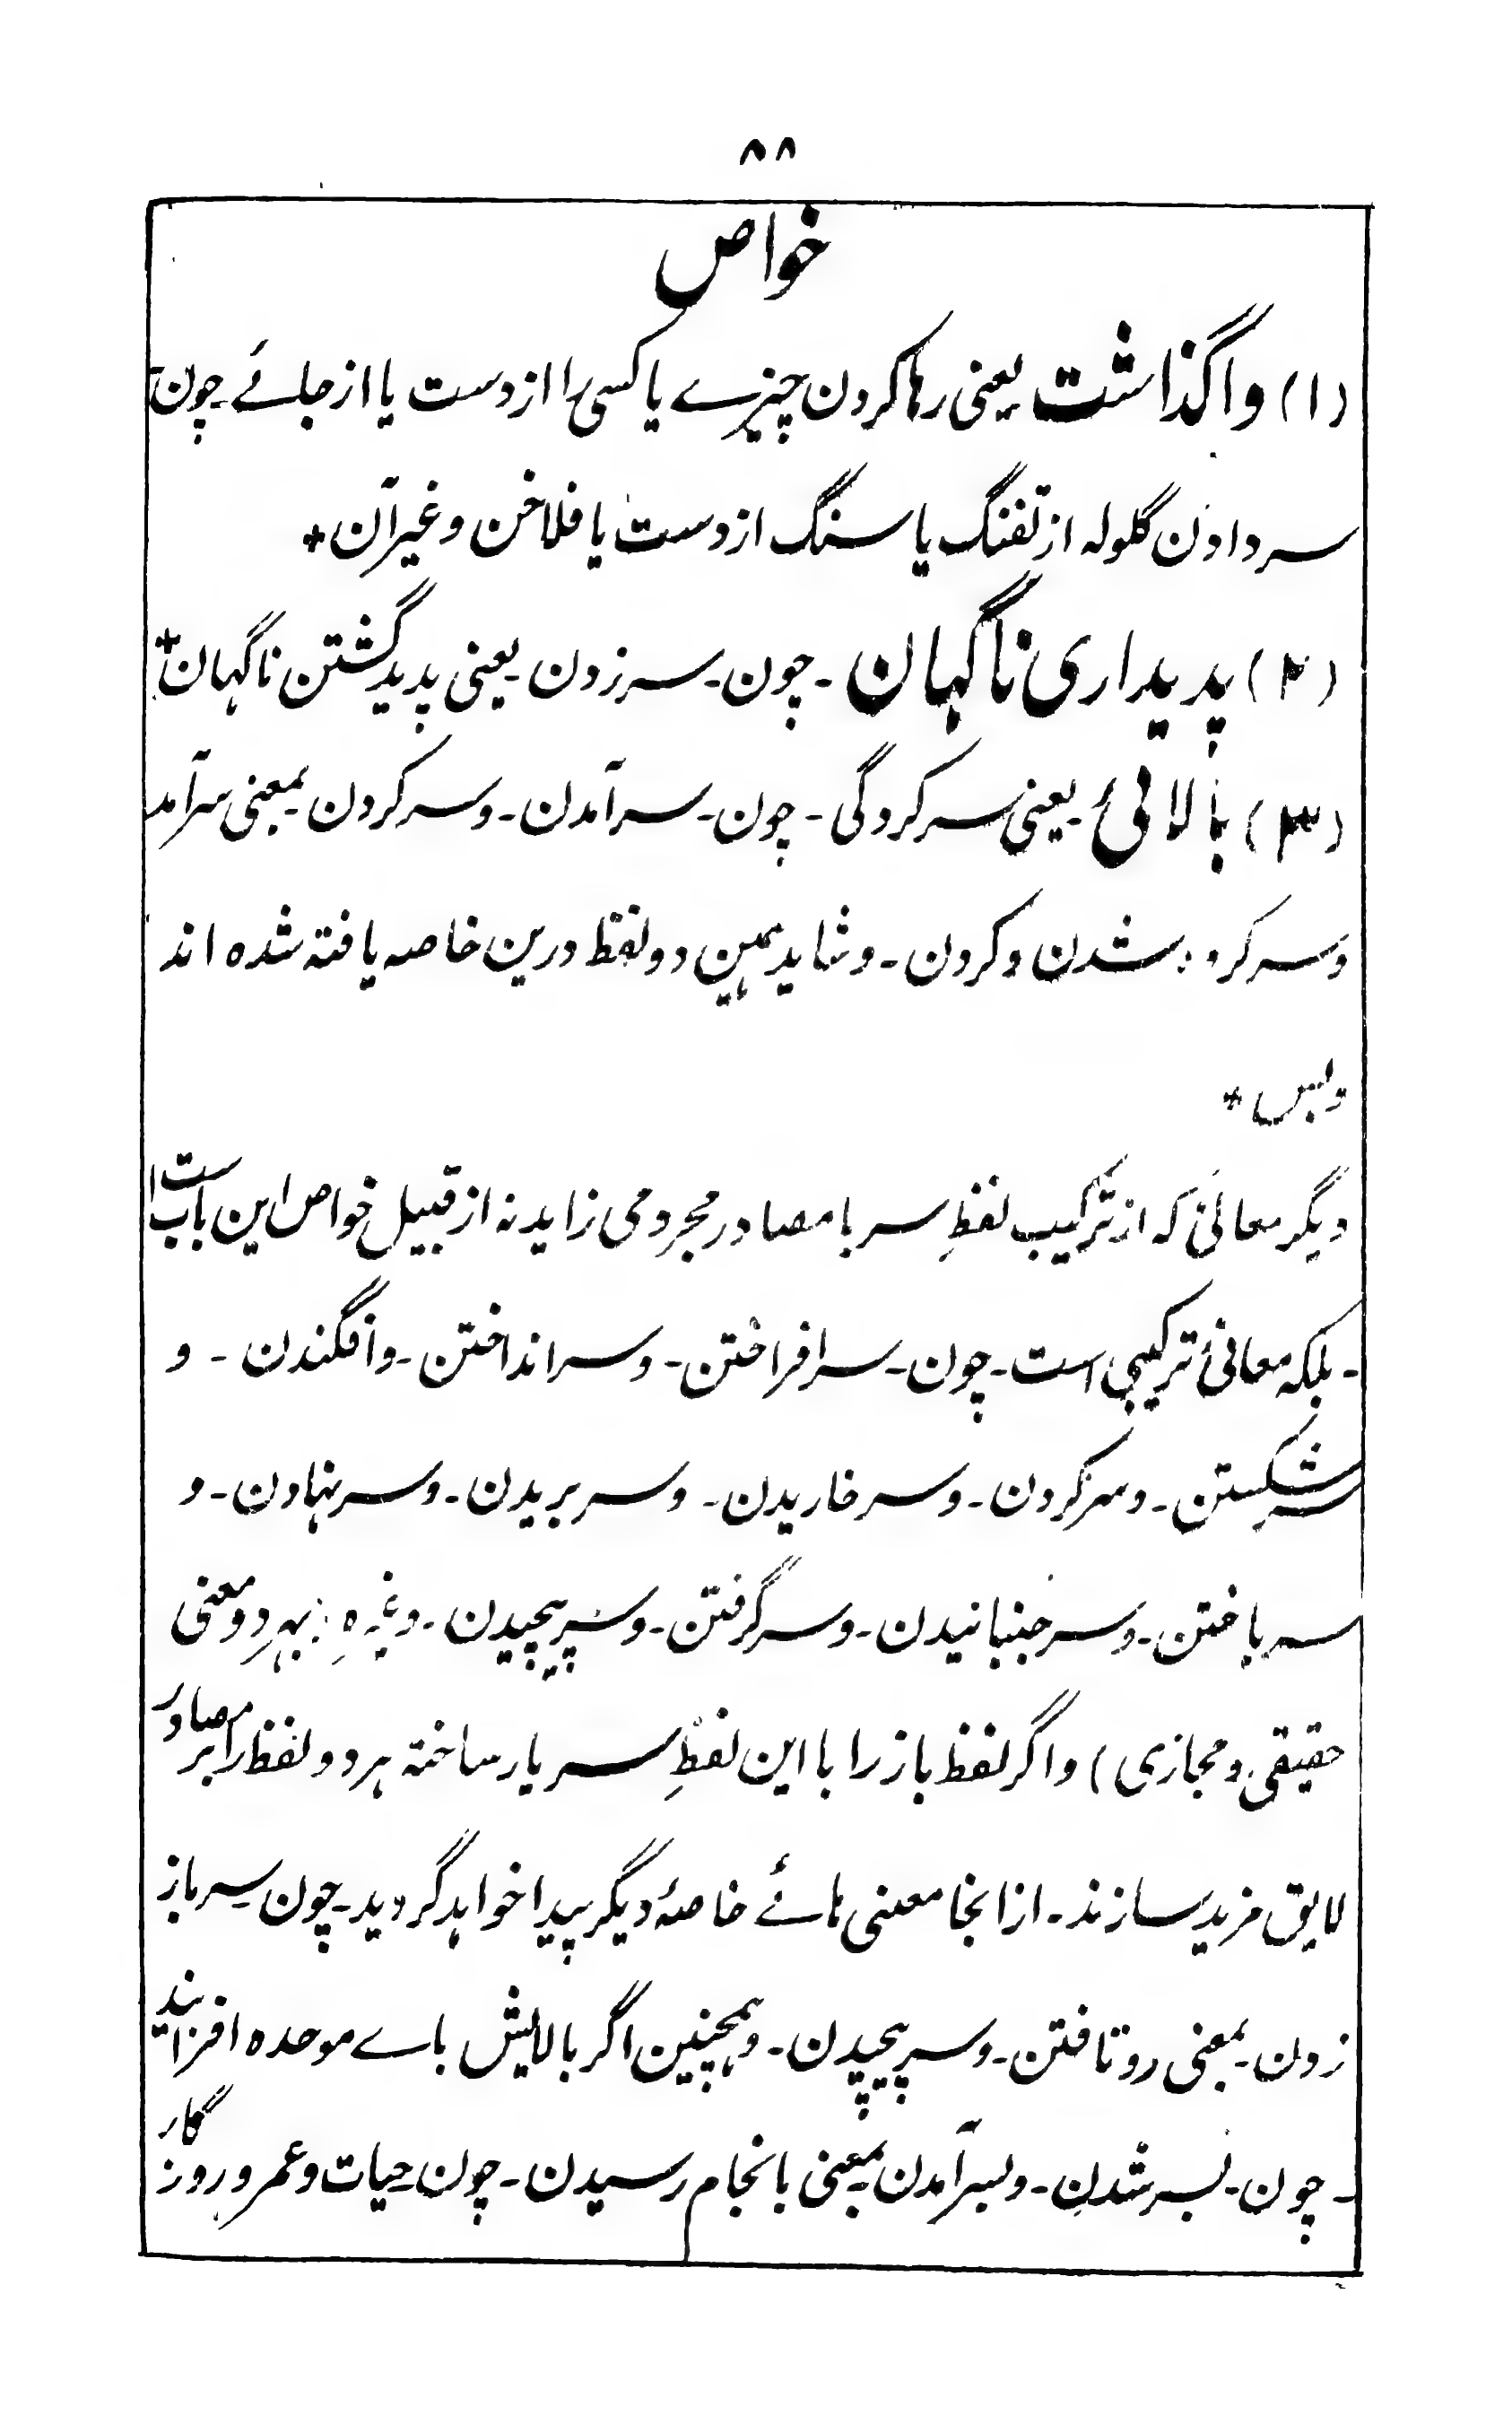 ۸۸
خواص
(۱) واگذاشت یعنی رها کردن چیزے یا کسی را از دست یا از جائے۔ چون
سر دادن گلوله از تفنگ یا سنگ از دست یا فلاخن وغیر آن *
(۲) پدیداری ناگهان ۔ چون۔ سر زدن۔ یعنی پدید گشتن ناگهان *
(۳) بالائی یعنی سرکردگی ۔ چون۔ سر آمدن۔ و سر کردن بمعنی سرآمد
و سرکرده شدن و کردن ۔ و شاید همین دو لفظ درین خاصه یافته شده اند
و بس *
دیگر معانیٔ که از ترکیب لفظِ سر با مصادر مجرد می زاید نه از قبیل خواص این باب است
۔ بلکه معانیٔ ترکیبی است۔ چون۔ سر افراختن۔ و سر انداختن۔ و افگندن ۔ و
سر شکستن ۔ و سر کردن ۔ و سر خاریدن ۔ و سر بریدن ۔ و سر نهادن ۔ و
سر باختن ۔ و سر جنبانیدن ۔ و سر گرفتن ۔ و سر پیچیدن ۔ وغیره بهر دو معنی
حقیقی و مجازی) و اگر لفظ باز را با این لفظِ سر یار ساخته هر دو لفظ را بر مصادر
لایق مزید سازند ۔ از انجا معنی هائے خاصۂ دیگر پیدا خواهد گردید۔ چون سر باز
زدن۔ بمعنی رو تافتن ۔ و سر پیچیدن ۔ و همچنین اگر بالایش باے موحده افزایند
۔ چون۔ بسر شدن ۔ و بسر آمدن بمعنی بانجام رسیدن ۔ چون حیات و عمر و روزگار